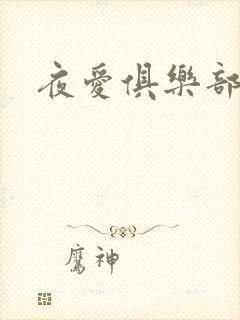 夜愛俱樂部
鷹神